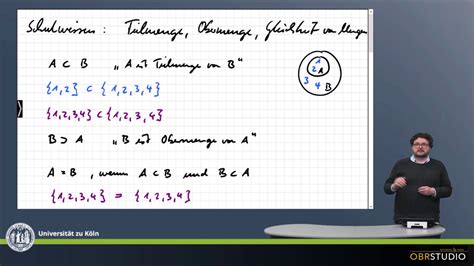 Schulwissen: Teilmenge, Obermenge, Gleichheit von Mengen
A ⊂ B „A ist Teilmenge von B"
{1,2} ⊂ {1,2,3,4}
{1,2,3,4} ⊂ {1,2,3,4}
B ⊃ A „B ist Obermenge von A"
A = B, wenn A ⊂ B und B ⊂ A
{1,2,3,4} = {1,2,3,4}
1
2 A
3
4 B
Universität zu Köln
OBRSTUDIO